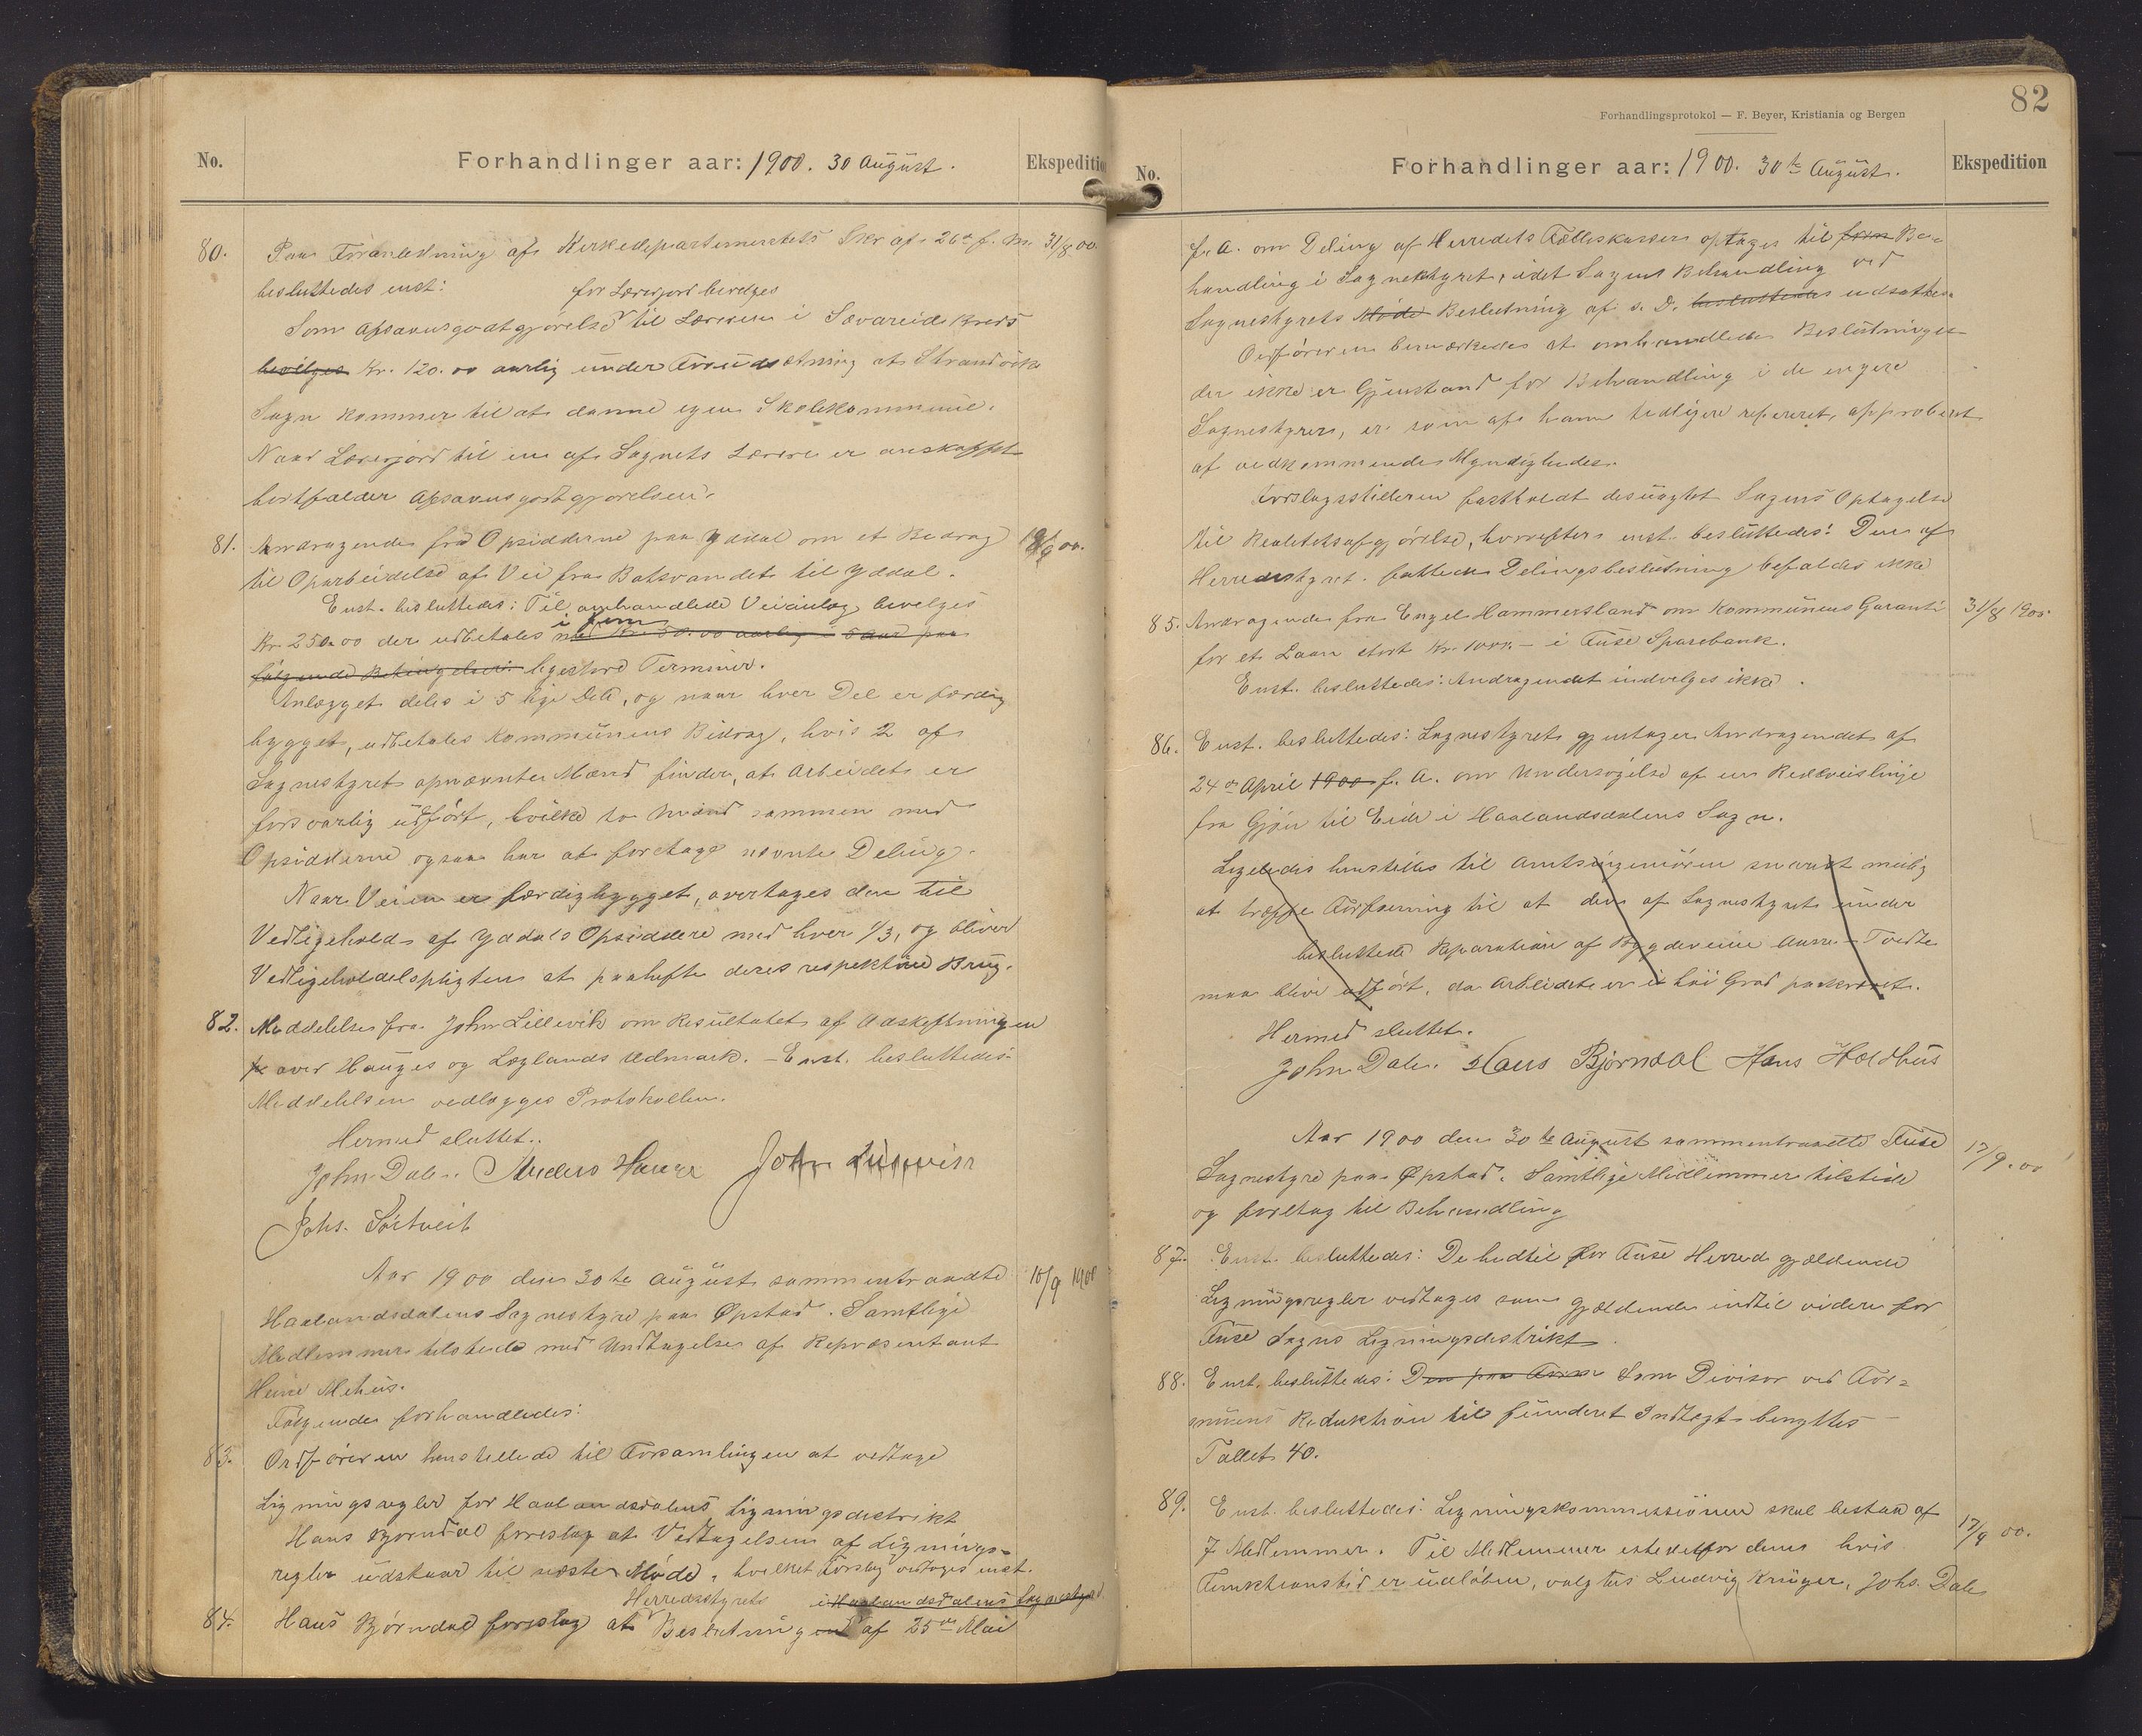 No. Forhandlinger aar: 1900. 30 August. Ekspedition
80. Paa Foranledning af Kirkedepartementets Skr af 26de f. M. 31/8 00.
besluttedes enst:
for Lærerjord bevilges
Som Afsavnsgodtgjørelse til Læreren i Sævareid Kreds
bevilges Kr. 120.00 aarlig under Forudsætning at Strandvik
Sogn kommer til at danne egen Skolekommune.
Naar Lærerjord til en af Sognets Lærere er anskaffet
bortfalder Afsavnsgodtgjørelsen.
81. Andragende fra Opsidderne paa Yddal om et Bidrag 18/9 00.
til Oparbeidelse af Vei fra Botsvandet til Yddal.
Enst. besluttedes: Til omhandlede Veianlæg bevilges
i fem
Kr. 250.00 der udbetales med Kr. 50.00 aarlig i 5 Aar paa
følgende Betingelser: ligestore Terminer.
Anlægget deles i 5 lige Dele, og naar hver Del er færdig
bygget, udbetales Kommunens Bidrag, hvis 2 af
Sognestyret opnævnte Mænd finder, at Arbeidet er
forsvarlig udført, hvilke to Mænd sammen med
Opsidderne ogsaa har at foretage nævnte Deling.
Naar Veien er færdigbygget, overtages den til
Vedligehold af Yddals Opsiddere med hver 1/3, og bliver
Vedligeholdelsspligten at paahefte deres respektive Brug.
82. Meddelelse fra John Lillevik om Resultatet af Udskiftningen
over Hauges og Lygtlands Udmark. - Enst. besluttedes:
Meddelelsen vedlægges Protokollen.
Hermed sluttet.
John Dale. Anders Hauge John Lillevik
Johs. Sørtveit
Aar 1900 den 30te August sammentraadte 18/9 1900
Haalandsdalens Sognestyre paa Øpstad. Samtlige
Medlemmer tilstede med Undtagelse af Repræsentant
Heine Mehus.
Følgende forhandledes:
83. Ordføreren henstillede til Forsamlingen at vedtage
Ligningsregler for Haalandsdalens Ligningsdistrikt
Hans Bjørndal foreslog at Vedtagelsen af Lignings-
regler udstaar til næste Møde, hvilket Forslag vedtoges enst.
Herredsstyrets i Haalandsdalens Sognestyre
84. Hans Bjørndal foreslog at Beslutningen af 25de Mai
82
Forhandlingsprotokol — F. Beyer, Kristiania og Bergen
No. Forhandlinger aar: 1900. 30te August. Ekspedition
f. A. om Deling af Herredets Fælleskasser optages til Be-
handling i Sognestyret, idet Sagens Behandling ved
Sognestyrets Møde Beslutning af s. D. besluttedes udsattes.
Ordføreren bemærkede at omhandlede Beslutninger
der ikke er Gjenstand for Behandling i de engere
Sognestyrer, er som af ham tidligere refereret, approberet
af vedkommende Myndigheder.
Forslagsstilleren fastholdt desuagtet Sagens Optagelse
til Realitetsafgjørelse, hvorefter enst. besluttedes: Den af
Herredsstyret fattede Delingsbeslutning befaldes ikke
85. Andragende fra Engel Hammersland om Kommunens Garanti 31/8 1900.
for et Laan stort Kr. 1000.- i Fuse Sparebank.
Enst. besluttedes: Andragendet indvilges ikke.
86. Enst. besluttedes: Sognestyret gjentager Andragendet af
24de April 1900 f. A. om Undersøgelse af en Rodeveislinje
fra Gjøn til Eide i Haalandsdalens Sogn.
Ligeledes henstilles til Amtsingeniøren snarest mulig
at træffe Forføining til at den af Sognestyret under
besluttede Reparation af Bygdeveien Aarre-Tveite
maa blive udført, da Arbeidet er i høi Grad paakrævet.
Hermed sluttet.
John Dale. Hans Bjørndal Hans Holdhus
Aar 1900 den 30te August sammentraadte Fuse 17/9.00
Sognestyre paa Øpstad. Samtlige Medlemmer tilstede
og foretog til Behandling
87. Enst. besluttedes: De hidtil for Fuse Herred gjældende
Ligningsregler vedtages som gjældende indtil videre for
Fuse Sogns Ligningsdistrikt.
88. Enst. besluttedes: Den paa Som Divisor ved For-
muens Reduktion til funderet Indtægt benyttes
Tallet 40.
89. Enst. besluttedes: Ligningskommissionen skal bestaa af
7 Medlemmer. Til Medlemmer istedetfor dem hvis 17/9 00.
Funktionstid er udløben, valgtes Ludvig Krüger, Johs. Dale